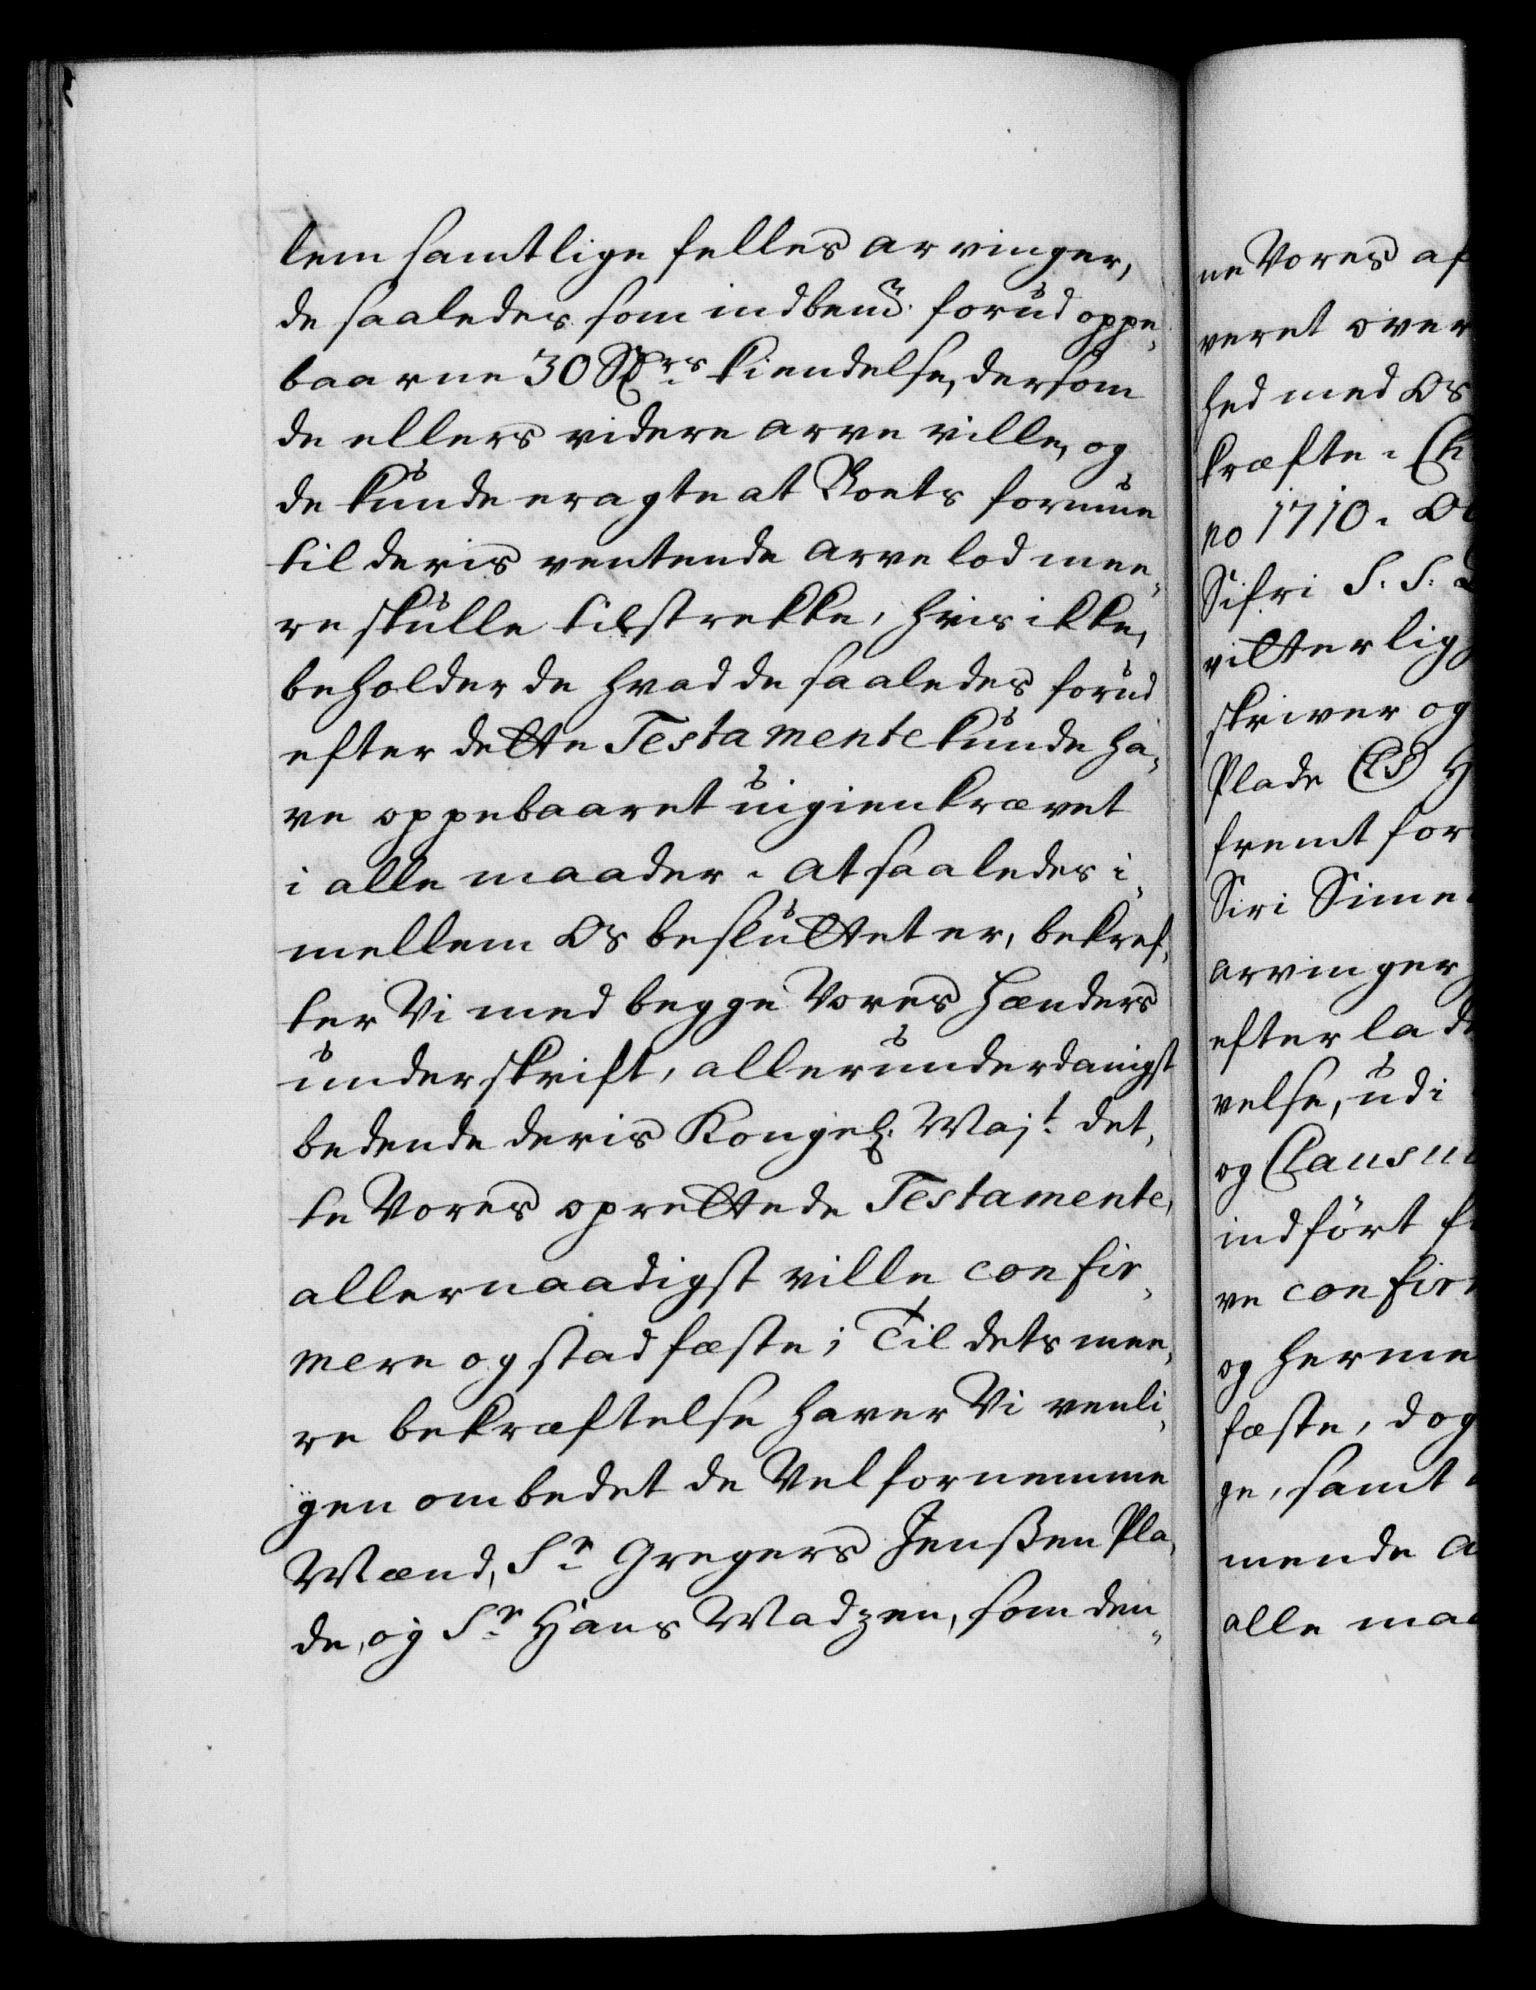 lem samtlige felles arvinger,
de saaledes som indbemt. forud oppe-
baarne 30 Rdrs kiendelse, dersom
de ellers videre arve ville, og
de kunde eragte at Boets formue
til deris ventende arvelod mee-
re skulle tilstrekke, hvis ikke,
beholder de hvad de saaledes forud
efter dette Testamente kunde ha-
ve oppebaaret uigienkrævet
i alle maader. At saaledes i-
mellem Os besluttet er, bekref-
ter Vi med begge Vores Hænders
underskrift, allerunderdanigst
bedende deris Kongel. Majt. det-
te Vores oprettede Testamente,
allernaadigst ville confir-
mere og stadfæste; Til dets mee-
re bekræftelse haver Vi venli-
gen ombedet de Velfornemme
Mænd, Sr. Gregers Jenssen Pla-
de, og Sr. Hans Madzen, som den-
ne Vores af
veret over
hed med Os
kræfte.
no 1710.
Sifri S. S.
vitterlig
skriver og
Plade (LS) H
fremt for
Siri Sime
arvinger
efterlad
velse, udi
og Clausu
indført f
ve confir
og herme
fæste, dog
ge, samt
mende a
alle maa